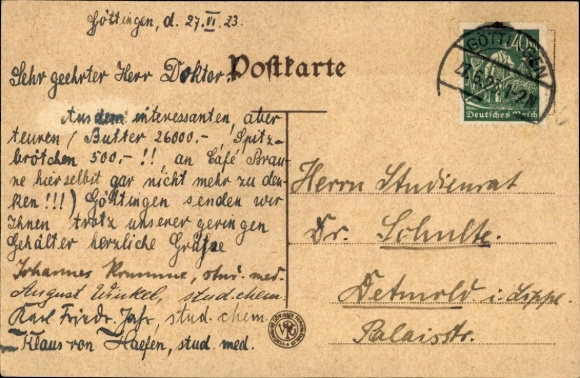 Göttingen, d. 27.VI.23.
Sehr geehrter Herr Doktor.
Postkarte
Aus dem interessanten, aber
teuren (Butter 26000,-, Spitz-
brötchen 500,- !! an Café Brau-
ne hierselbst gar nicht mehr zu den-
ken!!!) Göttingen senden wir
Ihnen trotz unserer geringen
Gehälter herzliche Grüße
Johannes Krumme, stud. med.
August Winkel, stud. chem.
Karl Friedr. Jahr, stud. chem.
Klaus von Haefen, stud. med.
GÖTTINGEN
27.6.23
40
Deutsches Reich
Herrn Studienrat
Dr. Schulte.
Detmold i. Lippe.
Palaisstr.